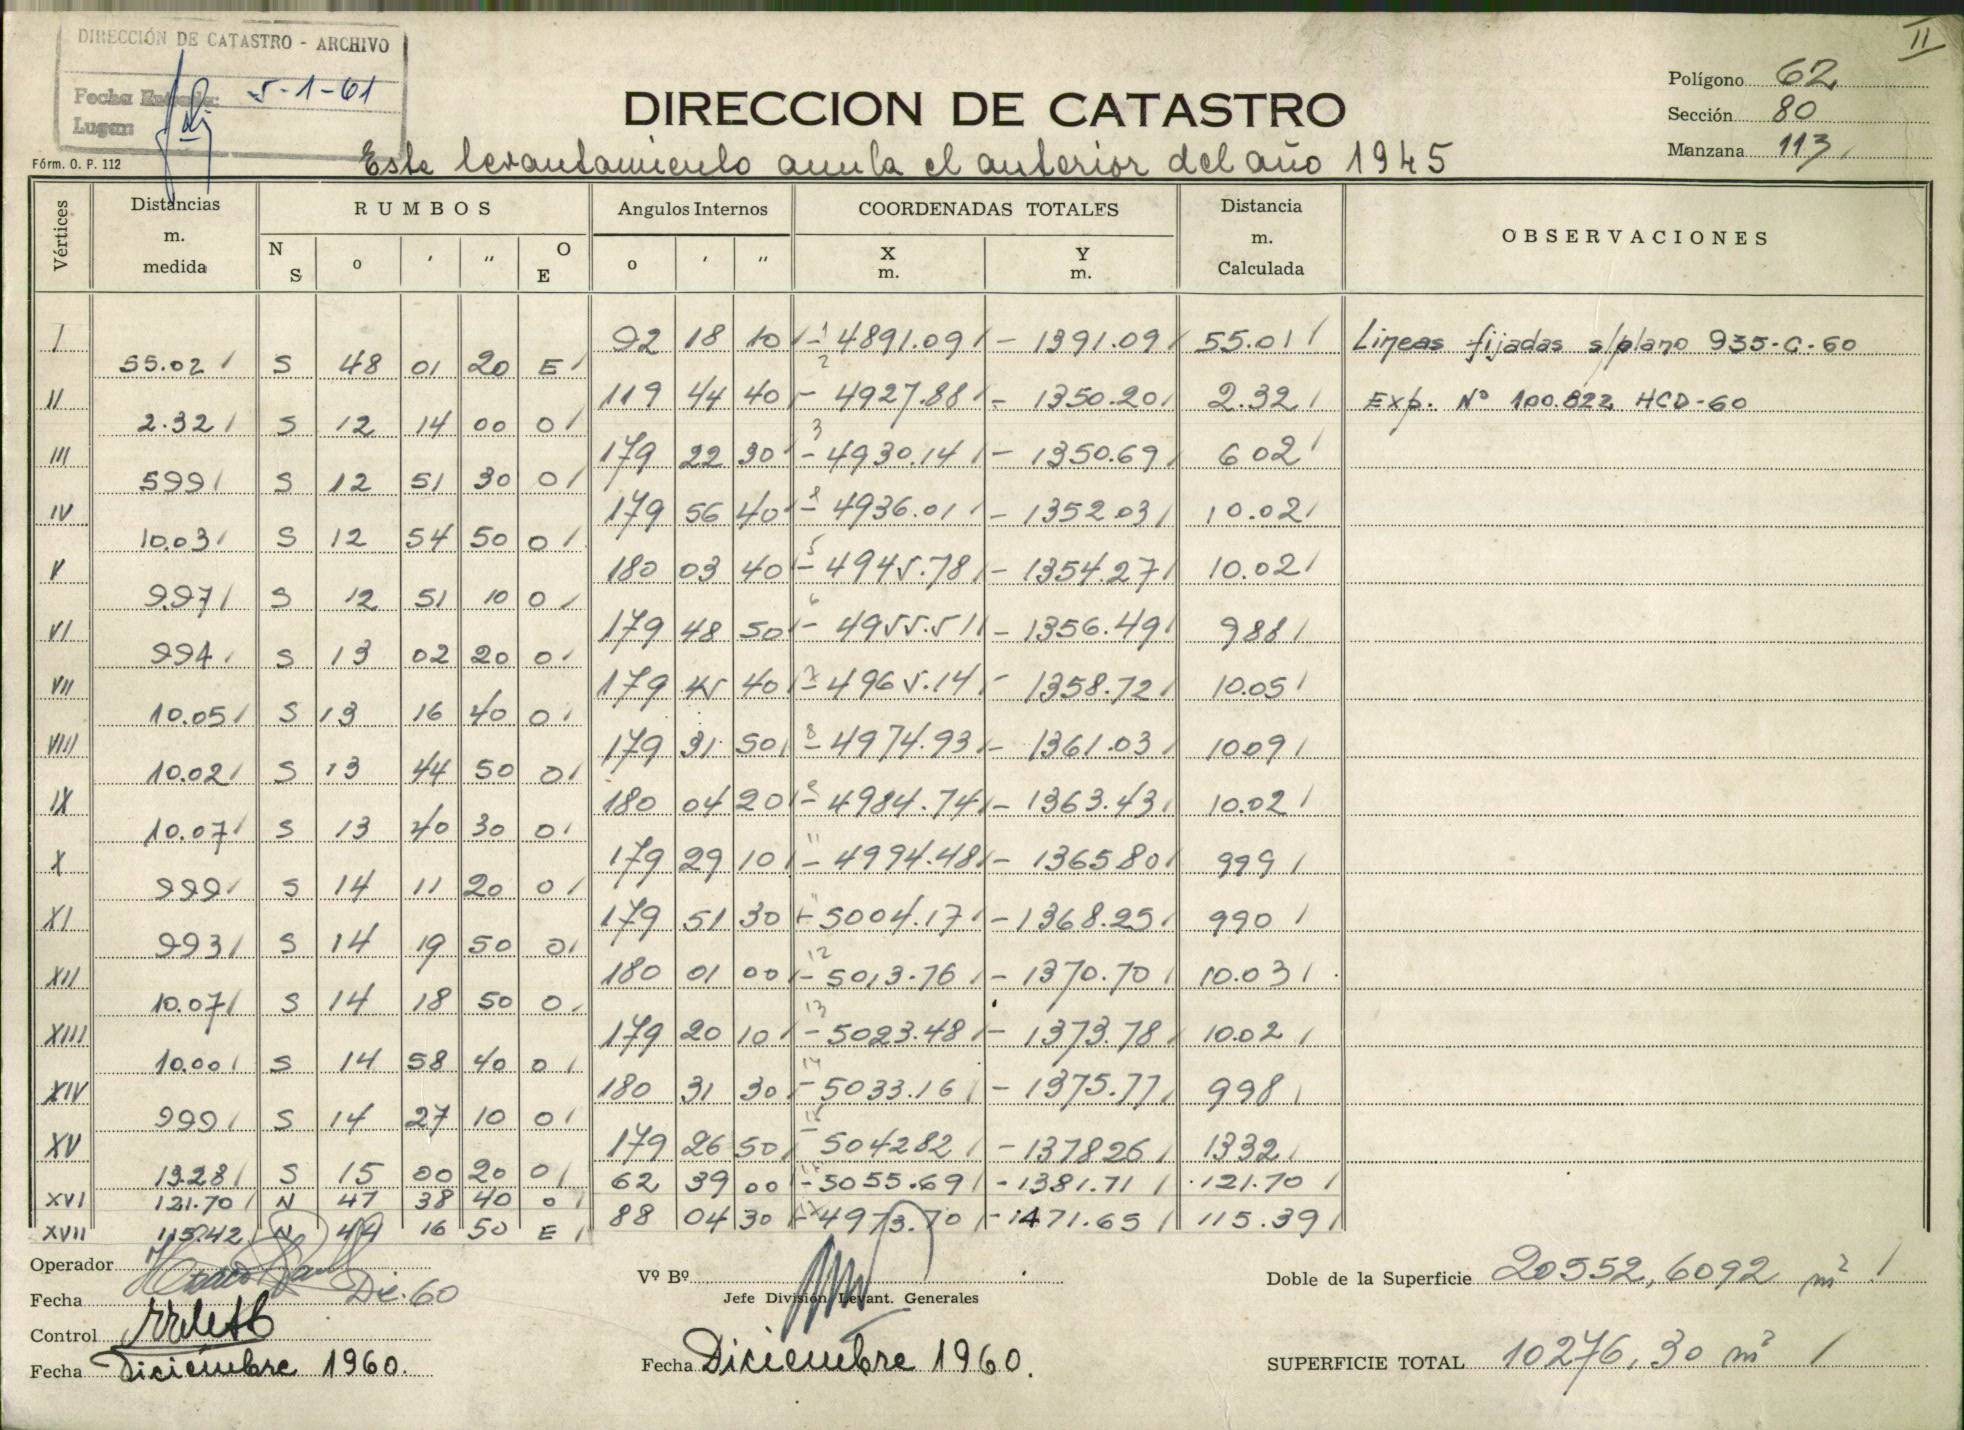 II
DIRECCIÓN DE CATASTRO - ARCHIVO
Fecha Entrada: 5-1-61
Lugar:
Polígono 62
Sección 80
Manzana 113
DIRECCION DE CATASTRO
Fórm. O. P. 112
Este levantamiento anula el anterior del año 1945
Vértices Distancias m. medida RUMBOS Angulos Internos COORDENADAS TOTALES Distancia m. Calculada OBSERVACIONES
N S o ' " O E o ' " X m. Y m.
I 92 18 10 - 4891.09 - 1391.09 55.01 Lineas fijadas s/plano 935-C-60
55.02 S 48 01 20 E
II 119 44 40 - 4927.88 - 1350.20 2.32 Exp. Nº 100.822 HCD-60
2.32 S 12 14 00 O
III 179 22 30 - 4930.14 - 1350.69 6 02
5 99 S 12 51 30 O
IV 179 56 40 - 4936.01 - 1352 03 10.02
10.03 S 12 54 50 O
V 180 03 40 - 4945.78 - 1354.27 10.02
9.97 S 12 51 10 O
VI 179 48 50 - 4955.51 - 1356.49 9 88
9 94 S 13 02 20 O
VII 179 45 40 - 4965.14 - 1358.72 10.05
10.05 S 13 16 40 O
VIII 179 31 50 - 4974.93 - 1361.03 10 09
10.02 S 13 44 50 O
IX 180 04 20 - 4984.74 - 1363.43 10.02
10.07 S 13 40 30 O
X 179 29 10 - 4994.48 - 1365 80 9 99
9 99 S 14 11 20 O
XI 179 51 30 - 5004.17 - 1368.25 9 90
9 93 S 14 19 50 O
XII 180 01 00 - 5013.76 - 1370.70 10.03
10.07 S 14 18 50 O
XIII 179 20 10 - 5023.48 - 1373.78 10.02
10.00 S 14 58 40 O
XIV 180 31 30 - 5033.16 - 1375.77 9 98
9 99 S 14 27 10 O
XV 179 26 50 - 5042 82 - 1378 26 13 32
13 28 S 15 00 20 O
62 39 00 - 5055.69 - 1381.71 121.70
XVI 121.70 N 47 38 40 O
88 04 30 - 4973.70 - 1471.65 115.39
XVII 115.42 N 44 16 50 E
Operador
Fecha Dic. 60
Control
Fecha Diciembre 1960.
Vº Bº
Jefe División Levant. Generales
Fecha Diciembre 1960.
Doble de la Superficie 20552,6092 m²
SUPERFICIE TOTAL 10276,30 m²